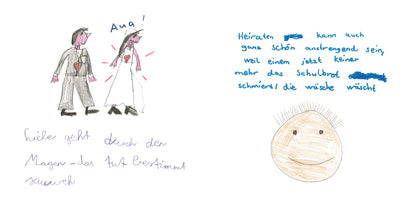 Aua!
Liebe geht durch den
Magen – das tut bestimmt
sauweh
Heiraten kann auch
ganz schön anstrengend sein,
weil einem jetzt keiner
mehr das Schulbrot
schmiert/die wäsche wäscht